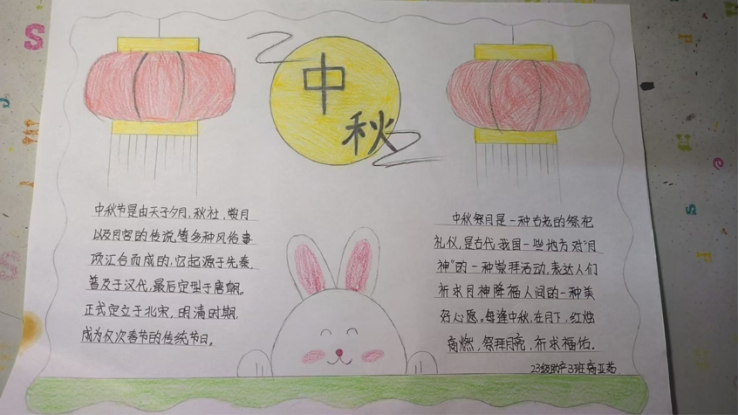 中
秋
中秋节是由天子夕月，秋社，拜月
以及月宫的传说，等多种风俗事
项汇合而成的，它起源于先秦，
普及于汉代，最后定型于唐朝。
正式定立于北宋，明清时期，
成为仅次春节的传统节日。
中秋祭月是一种古老的祭祀
礼仪，是古代我国一些地方对“月
神”的一种崇拜活动，表达人们
祈求月神降福人间的一种美
好心愿。每逢中秋，在月下，红烛
高燃，祭拜月亮，祈求福佑。
23级 3班